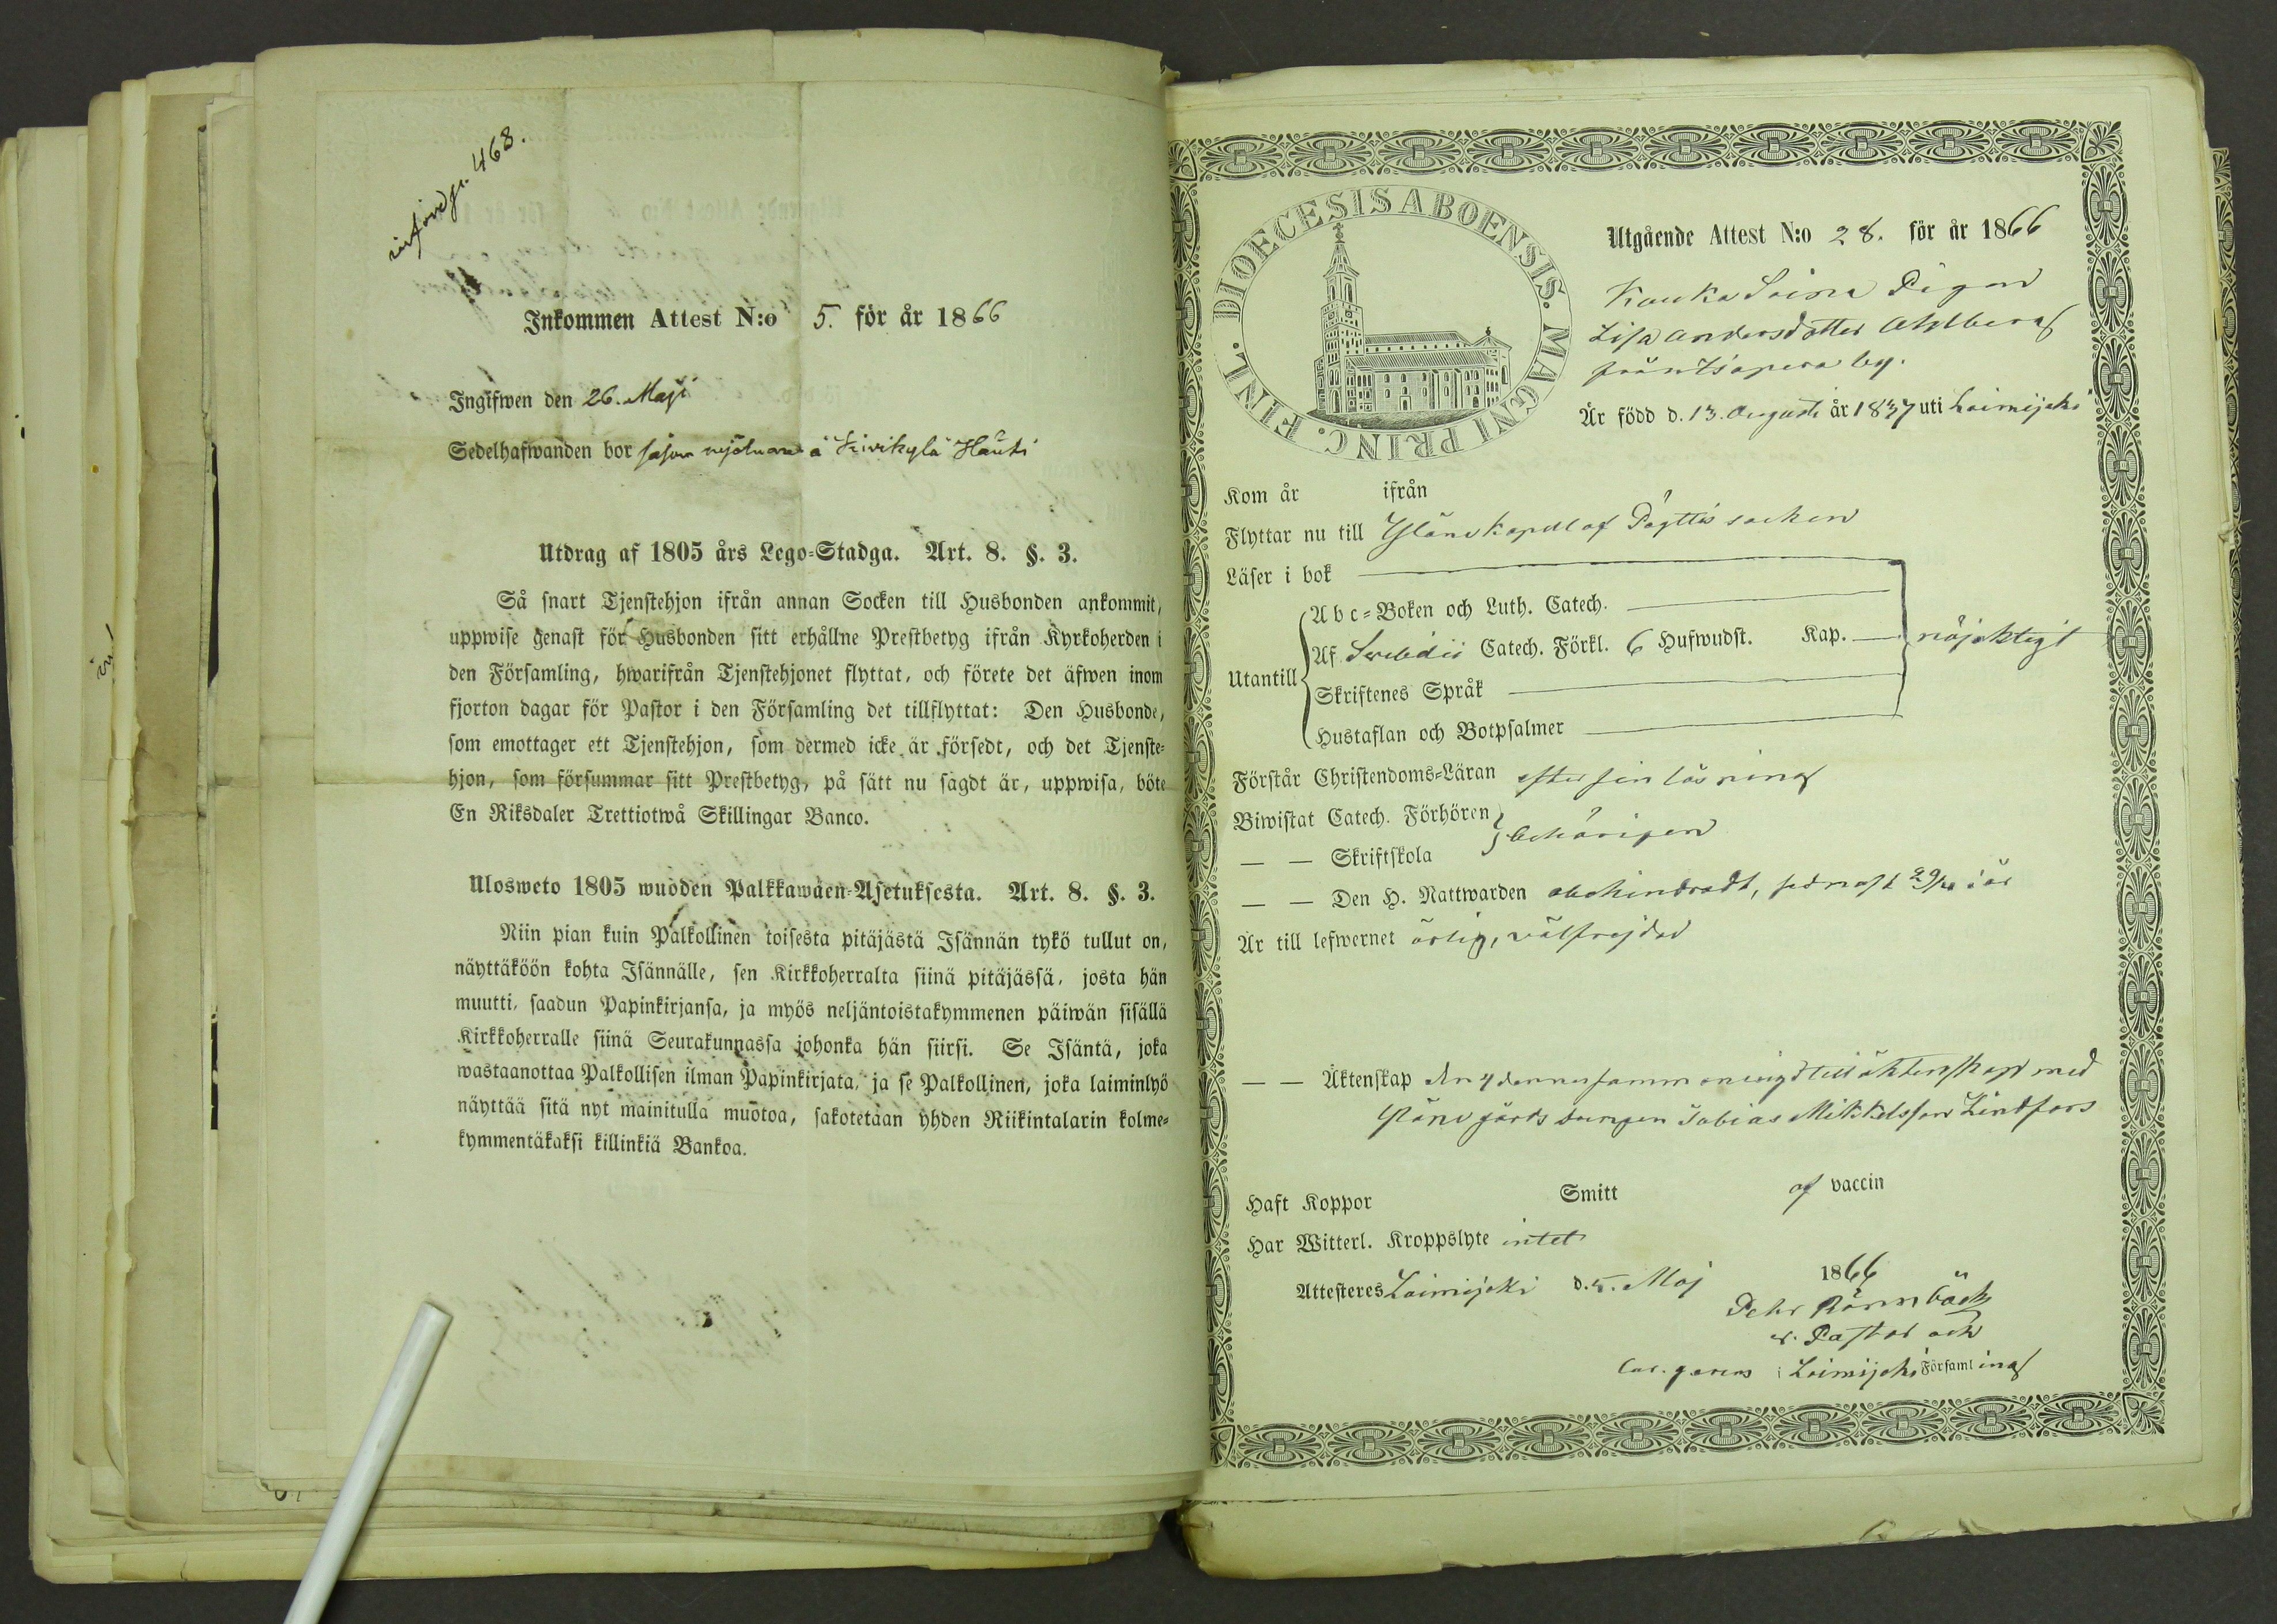 införd p. 468.
Inkommen Attest N:o 5. för år 1866
Ingifwen den 26. Maji
Sedelhafwanden bor såsom mjölnare å Kivikylä Hauti
Utdrag af 1805 års Lego-Stadga. Art. 8. §. 3.
Så snart Tjenstehjon ifrån annan Socken till Husbonden ankommit,
uppwise genast för Husbonden sitt erhållne Prestbetyg ifrån Kyrkoherden i
den Församling, hwarifrån Tjenstehjonet flyttat, och förete det äfwen inom
fjorton dagar för Pastor i den Församling det tillflyttat: Den Husbonde,
som emottager ett Tjenstehjon, som dermed icke är försedt, och det Tjenste-
hjon, som försummar sitt Prestbetyg, på sätt nu sagdt är, uppwisa, böte
En Riksdaler Trettiotwå Skillingar Banco.
Ulosweto 1805 wuoden Palkkawäen-Asetuksesta. Art. 8. §. 3.
Niin pian kuin Palkollinen toisesta pitäjästä Isännän tykö tullut on,
näyttäköön kohta Isännälle, sen Kirkkoherralta siinä pitäjässä, josta hän
muutti, saadun Papinkirjansa, ja myös neljäntoistakymmenen päiwän sisällä
Kirkkoherralle siinä Seurakunnassa johonka hän siirsi. Se Isäntä, joka
wastaanottaa Palkollisen ilman Papinkirjata, ja se Palkollinen, joka laiminlyö
näyttää sitä nyt mainitulla muotoa, sakotetaan yhden Riikintalarin kolme-
kymmentäkaksi killinkiä Bankoa.
DIOECESIS ABOENSIS. MAGNI PRINC. FINL.
Utgående Attest N:o 28. för år 1866
Pigan
Lisa Andersdotter Ahlberg
från by.
Är född d. 13. Augusti år 1837 uti Loimijoki
Kom år ifrån
Flyttar nu till Yläne Kapell af Pöyttis socken
Läser i bok
Utantill
Abc-Boken och Luth. Catech.
Af Svebilii Catech. Förkl. 6 Hufwudst. Kap. nöjaktigt
Skriftenes Språk
Hustaflan och Botpsalmer
Förstår Christendoms-Läran efter sin läsning
Biwistat Catech. Förhören
— — Skriftskola behörigen
— — Den H. Nattwarden obehindradt, sednast i år
Är till lefwernet ärlig, välfrejdad
— — Äktenskap med
Yläne gårds drängen Tobias Mikkelsson Lindfors
Haft Koppor Smitt af vaccin
Har Witterl. Kroppslyte intet
Attesteres Loimijoki d. 5. Maj 1866
Pehr Rönnbäck
v. Pastor och
i Loimijoki Församling